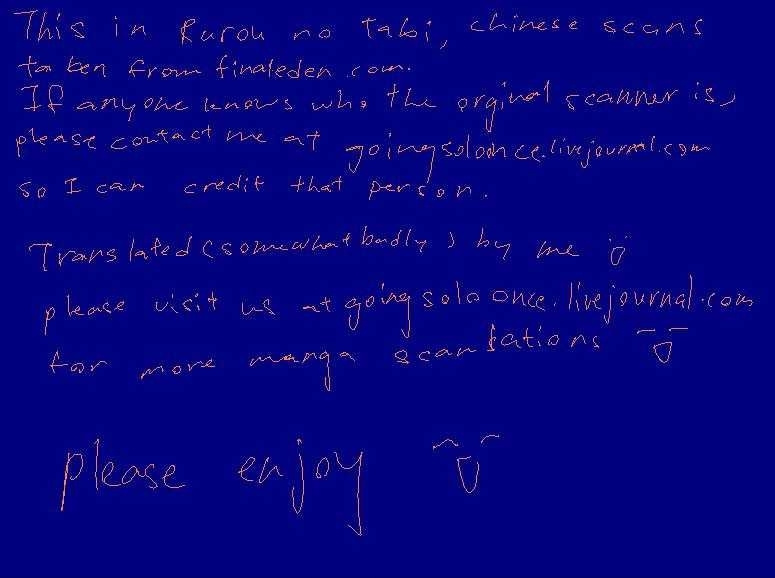 This in Rurou no tabi, chinese scans
taken from finaleden.com.
If anyone knows who the orginal scanner is,
please contact me at goingsoloonce.livejournal.com
so I can credit that person.
Translated (somewhat badly) by me
please visit us at goingsoloonce.livejournal.com
for more manga scanlations
please enjoy